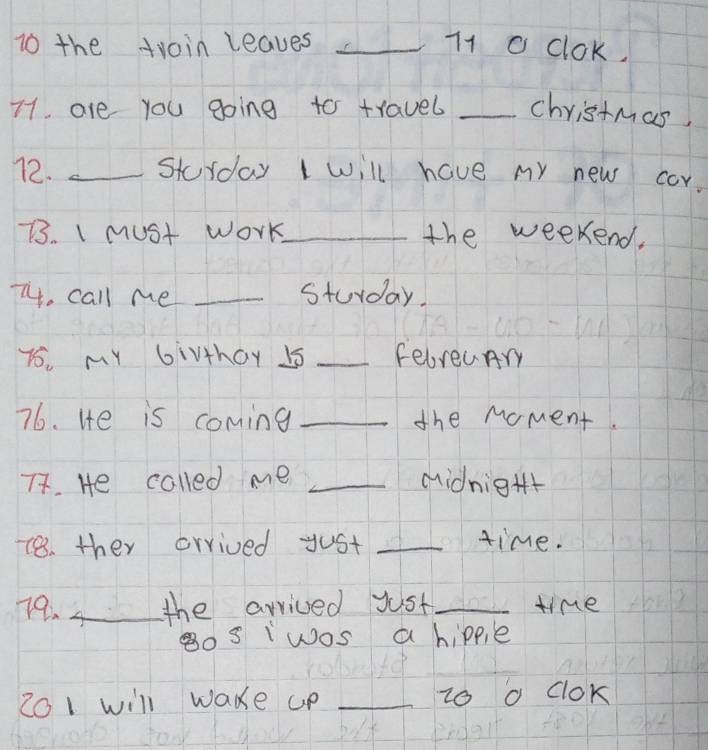 10 the train leaves ___ 11 o clok.
11. are you going to travel ___ christmas.
12. ___ Sturday I will have my new car.
13. I must work ___ the weekend.
14. call me ___ Sturday.
15. my birthay is ___ febreuary
16. He is coming ___ the moment.
17. He called me ___ midnight
18. they arrived just ___ time.
19. ___ the arrived just ___ time
80s i was a hippie
20 I will wake up ___ 10 o clok